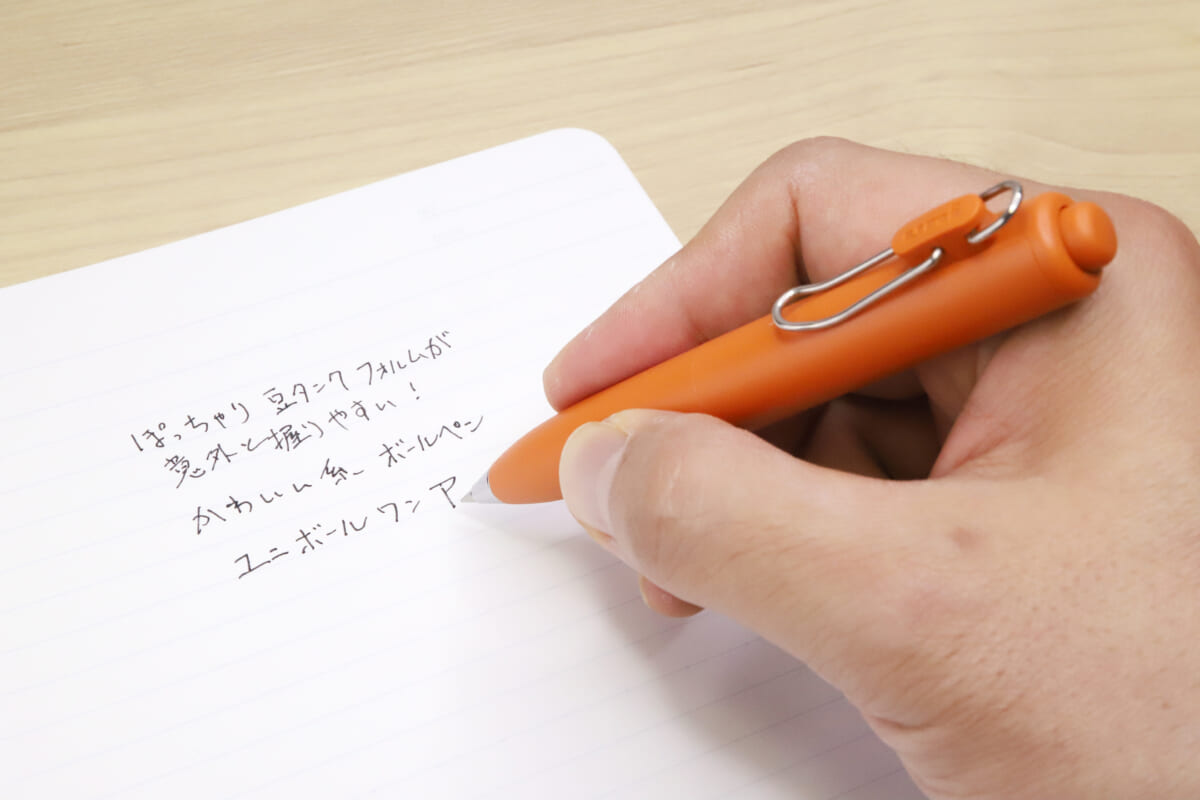 ぽっちゃり 豆タンク フォルムが
意外と握りやすい！
かわいい系 ボールペン
ユニボール ワン P